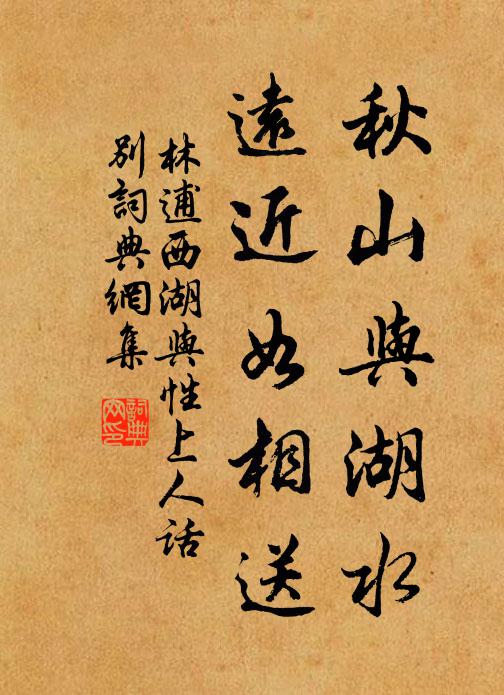 秋山與湖水
遠近如相送
林逋西湖與性上人話
別詞典網集
詞典
网印